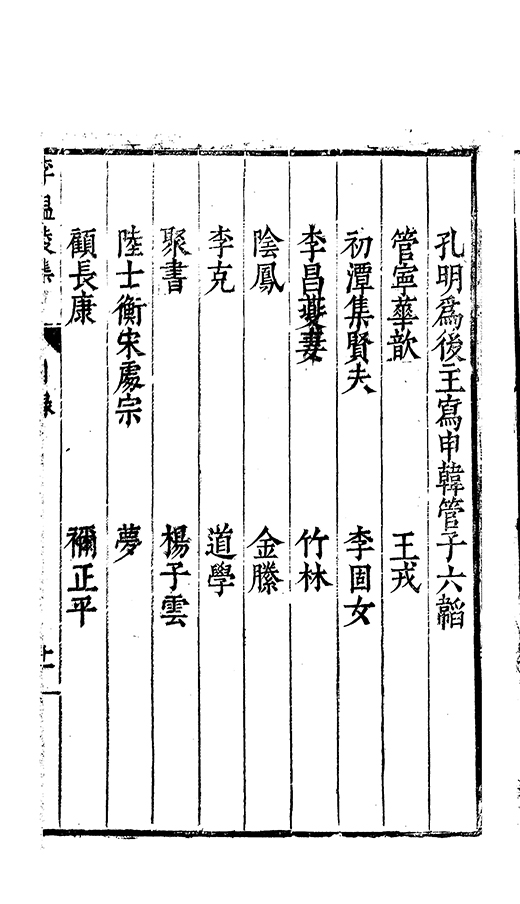 孔明爲後主寫申韓管子六韜
管寧華歆
王戎
初潭集賢夫
李固女
李昌夔妻
竹林
陰鳳
金縢
李克
道學
聚書
楊子雲
陸士衡宋處宗
夢
顧長康
禰正平
李溫陵集
目錄